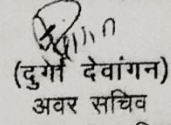 (दुर्गा देवांगन)
अवर सचिव